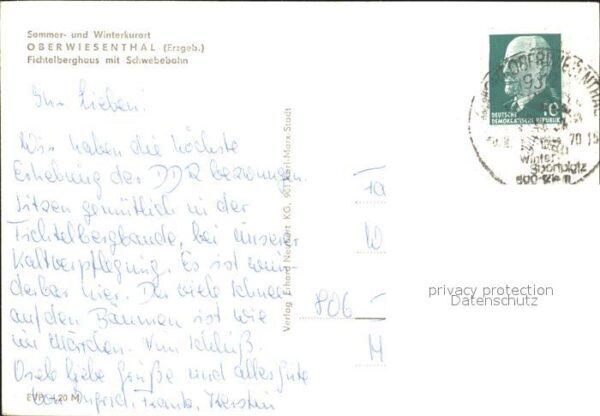 Sommer- und Winterkurort
OBERWIESENTHAL (Erzgeb.)
Fichtelberghaus mit Schwebebahn
Ihr Lieben!
Wir haben die höchste
Erhebung der DDR bezwungen.
Sitzen gemütlich in der
Fichtelbergbaude, bei unserer
Kaltverpflegung. Es ist wun-
derbar hier. Der viele Schnee
auf den Bäumen ist wie
im Märchen. Zum Schluß
liebe Grüße und alles Gute
von Ingrid, Frank, Kerstin
EVP 0,20 M
Verlag Erhard Neubert KG, 901 Karl-Marx-Stadt
Fa
W
806
M
10
DEUTSCHE
DEMOKRATISCHE REPUBLIK
OBERWIESENTHAL
931
70
Winter
Sportplatz
900-1214 m
privacy protection
Datenschutz